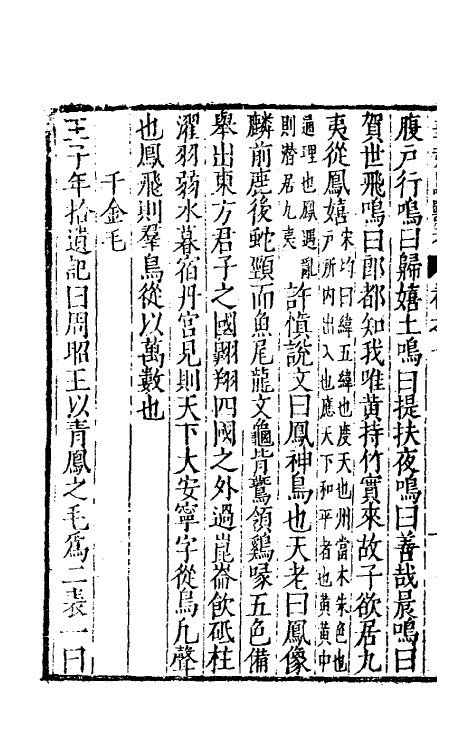 腹戸行鳴曰歸嬉土鳴曰提扶夜鳴曰善哉晨鳴曰
賀世飛鳴曰郎都知我唯黃持竹實來故子欲居九
夷從鳳嬉
宋均曰緯五緯也度天也州當木朱色也
戸所内出入也應天下和平者也黄黄中
通理也鳳遇亂
則潜居九夷
許慎說文曰鳳神鳥也天老曰鳳像
麟前鹿後蛇頸而魚尾龍文龜背鷰頷鷄喙五色備
舉出東方君子之國翺翔四國之外過崑崙飲砥柱
濯羽弱水暮宿丹宫見則天下大安寧字從鳥凡聲
也鳳飛則羣鳥從以萬數也
千金毛
王子年拾遺記曰周昭王以青鳳之毛爲二裘一曰